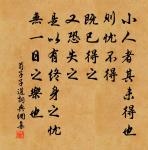 小人者其未得也
则忧不得
既已得之
又恐失之
是以有终身之忧
無一日之樂也
荀子子道詞典網集